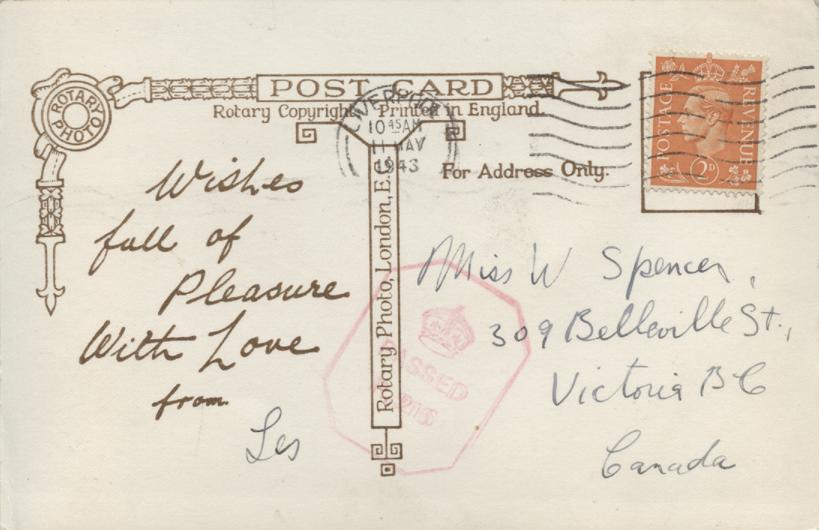 ROTARY
PHOTO
POST CARD
Rotary Copyright Printed in England.
LIVERPOOL
10 45 AM
11 MAY
1943
POSTAGE
REVENUE
2D
For Address Only.
Rotary Photo, London, E.C.
Wishes
full of
Pleasure
With Love
from
Les
Miss W Spencer,
309 Belleville St.,
Victoria B C
Canada
PASSED